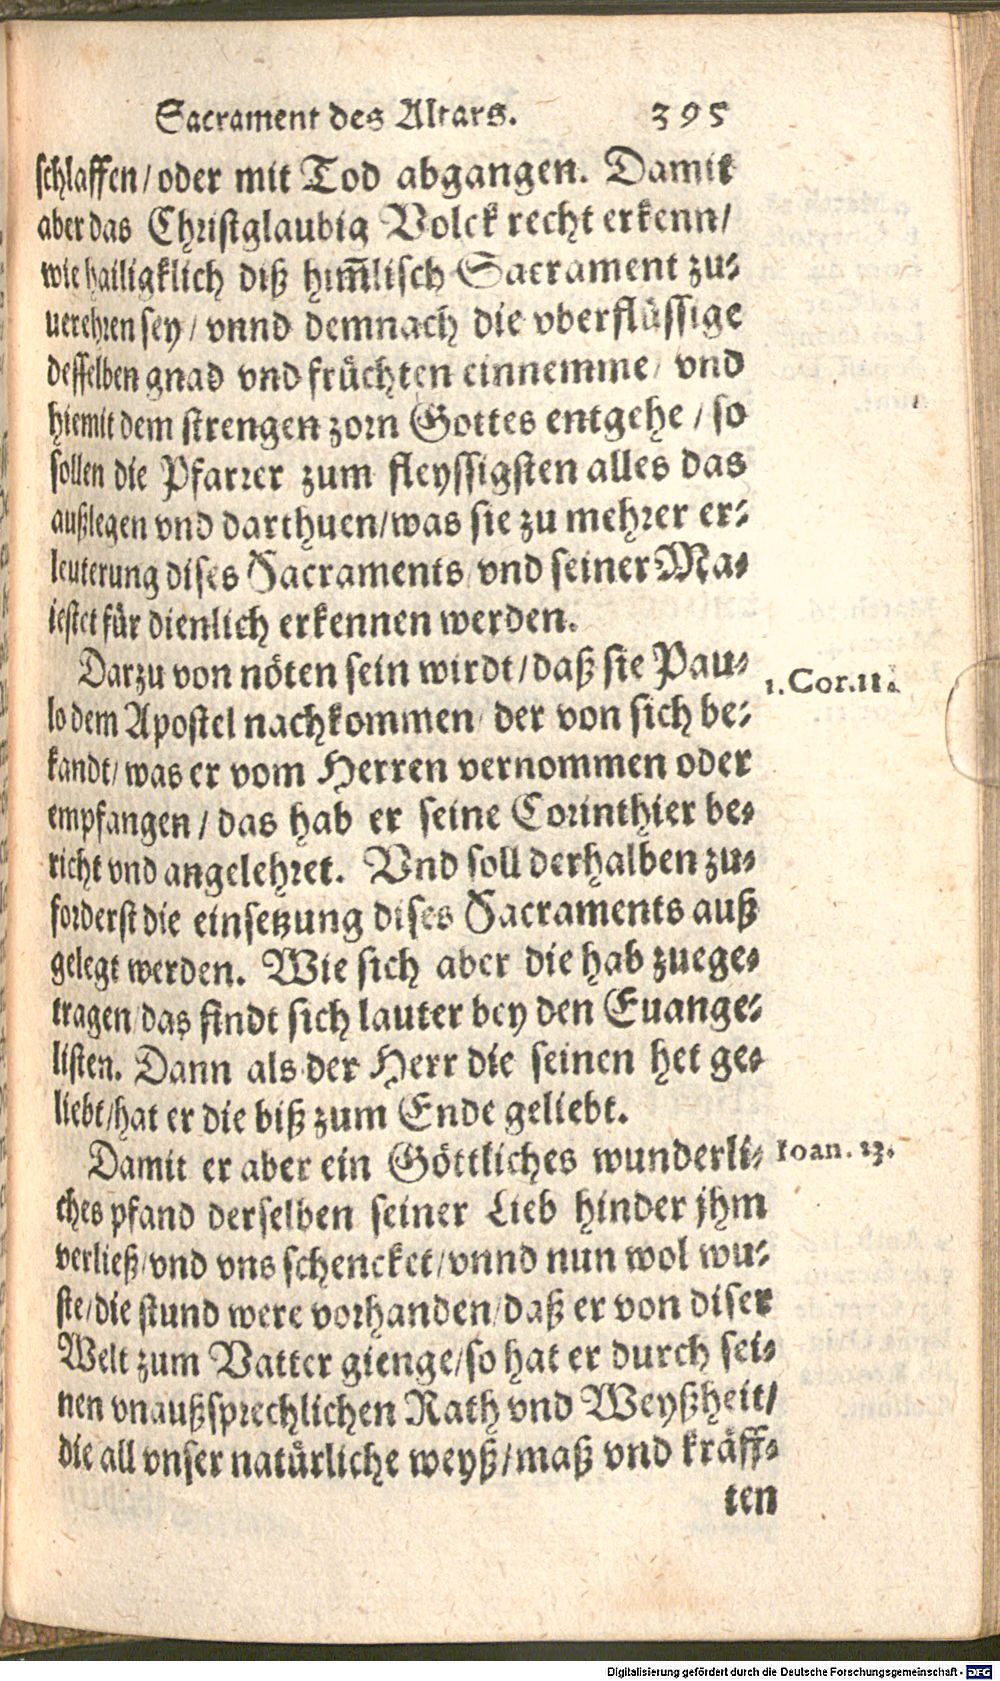 Sacrament des Altars. 395
schlaffen/oder mit Tod abgangen. Damit
aber das Christglaubig Volck recht erkenn/
wie hailigklich diß him̃lisch Sacrament zu-
uerehren sey/ vnnd demnach die vberflüssige
desselben gnad vnd früchten einnemme/ vnd
hiemit dem strengen zorn Gottes entgehe/ so
sollen die Pfarrer zum fleyssigsten alles das
außlegen vnd darthuen/was sie zu mehrer er-
leuterung dises Sacraments vnd seiner Ma-
iestet für dienlich erkennen werden.
Darzu von nöten sein wirdt/daß sie Pau- 1. Cor. 11.
lo dem Apostel nachkommen/ der von sich be-
kandt/was er vom Herren vernommen oder
empfangen/ das hab er seine Corinthier be-
richt vnd angelehret. Vnd soll derhalben zu-
forderst die einsetzung dises Sacraments auß
gelegt werden. Wie sich aber die hab zuege-
tragen/das findt sich lauter bey den Euange-
listen. Dann als der Herr die seinen het ge-
liebt/hat er die biß zum Ende geliebt.
Damit er aber ein Göttliches wunderli- Ioan. 13.
ches pfand derselben seiner Lieb hinder jhm
verließ/vnd vns schencket/vnnd nun wol wu-
ste/die stund were vorhanden/daß er von diser
Welt zum Vatter gienge/so hat er durch sei-
nen vnaußsprechlichen Rath vnd Weyßheit/
die all vnser natürliche weyß/maß vnd kräff-
ten
Digitalisierung gefördert durch die Deutsche Forschungsgemeinschaft - DFG